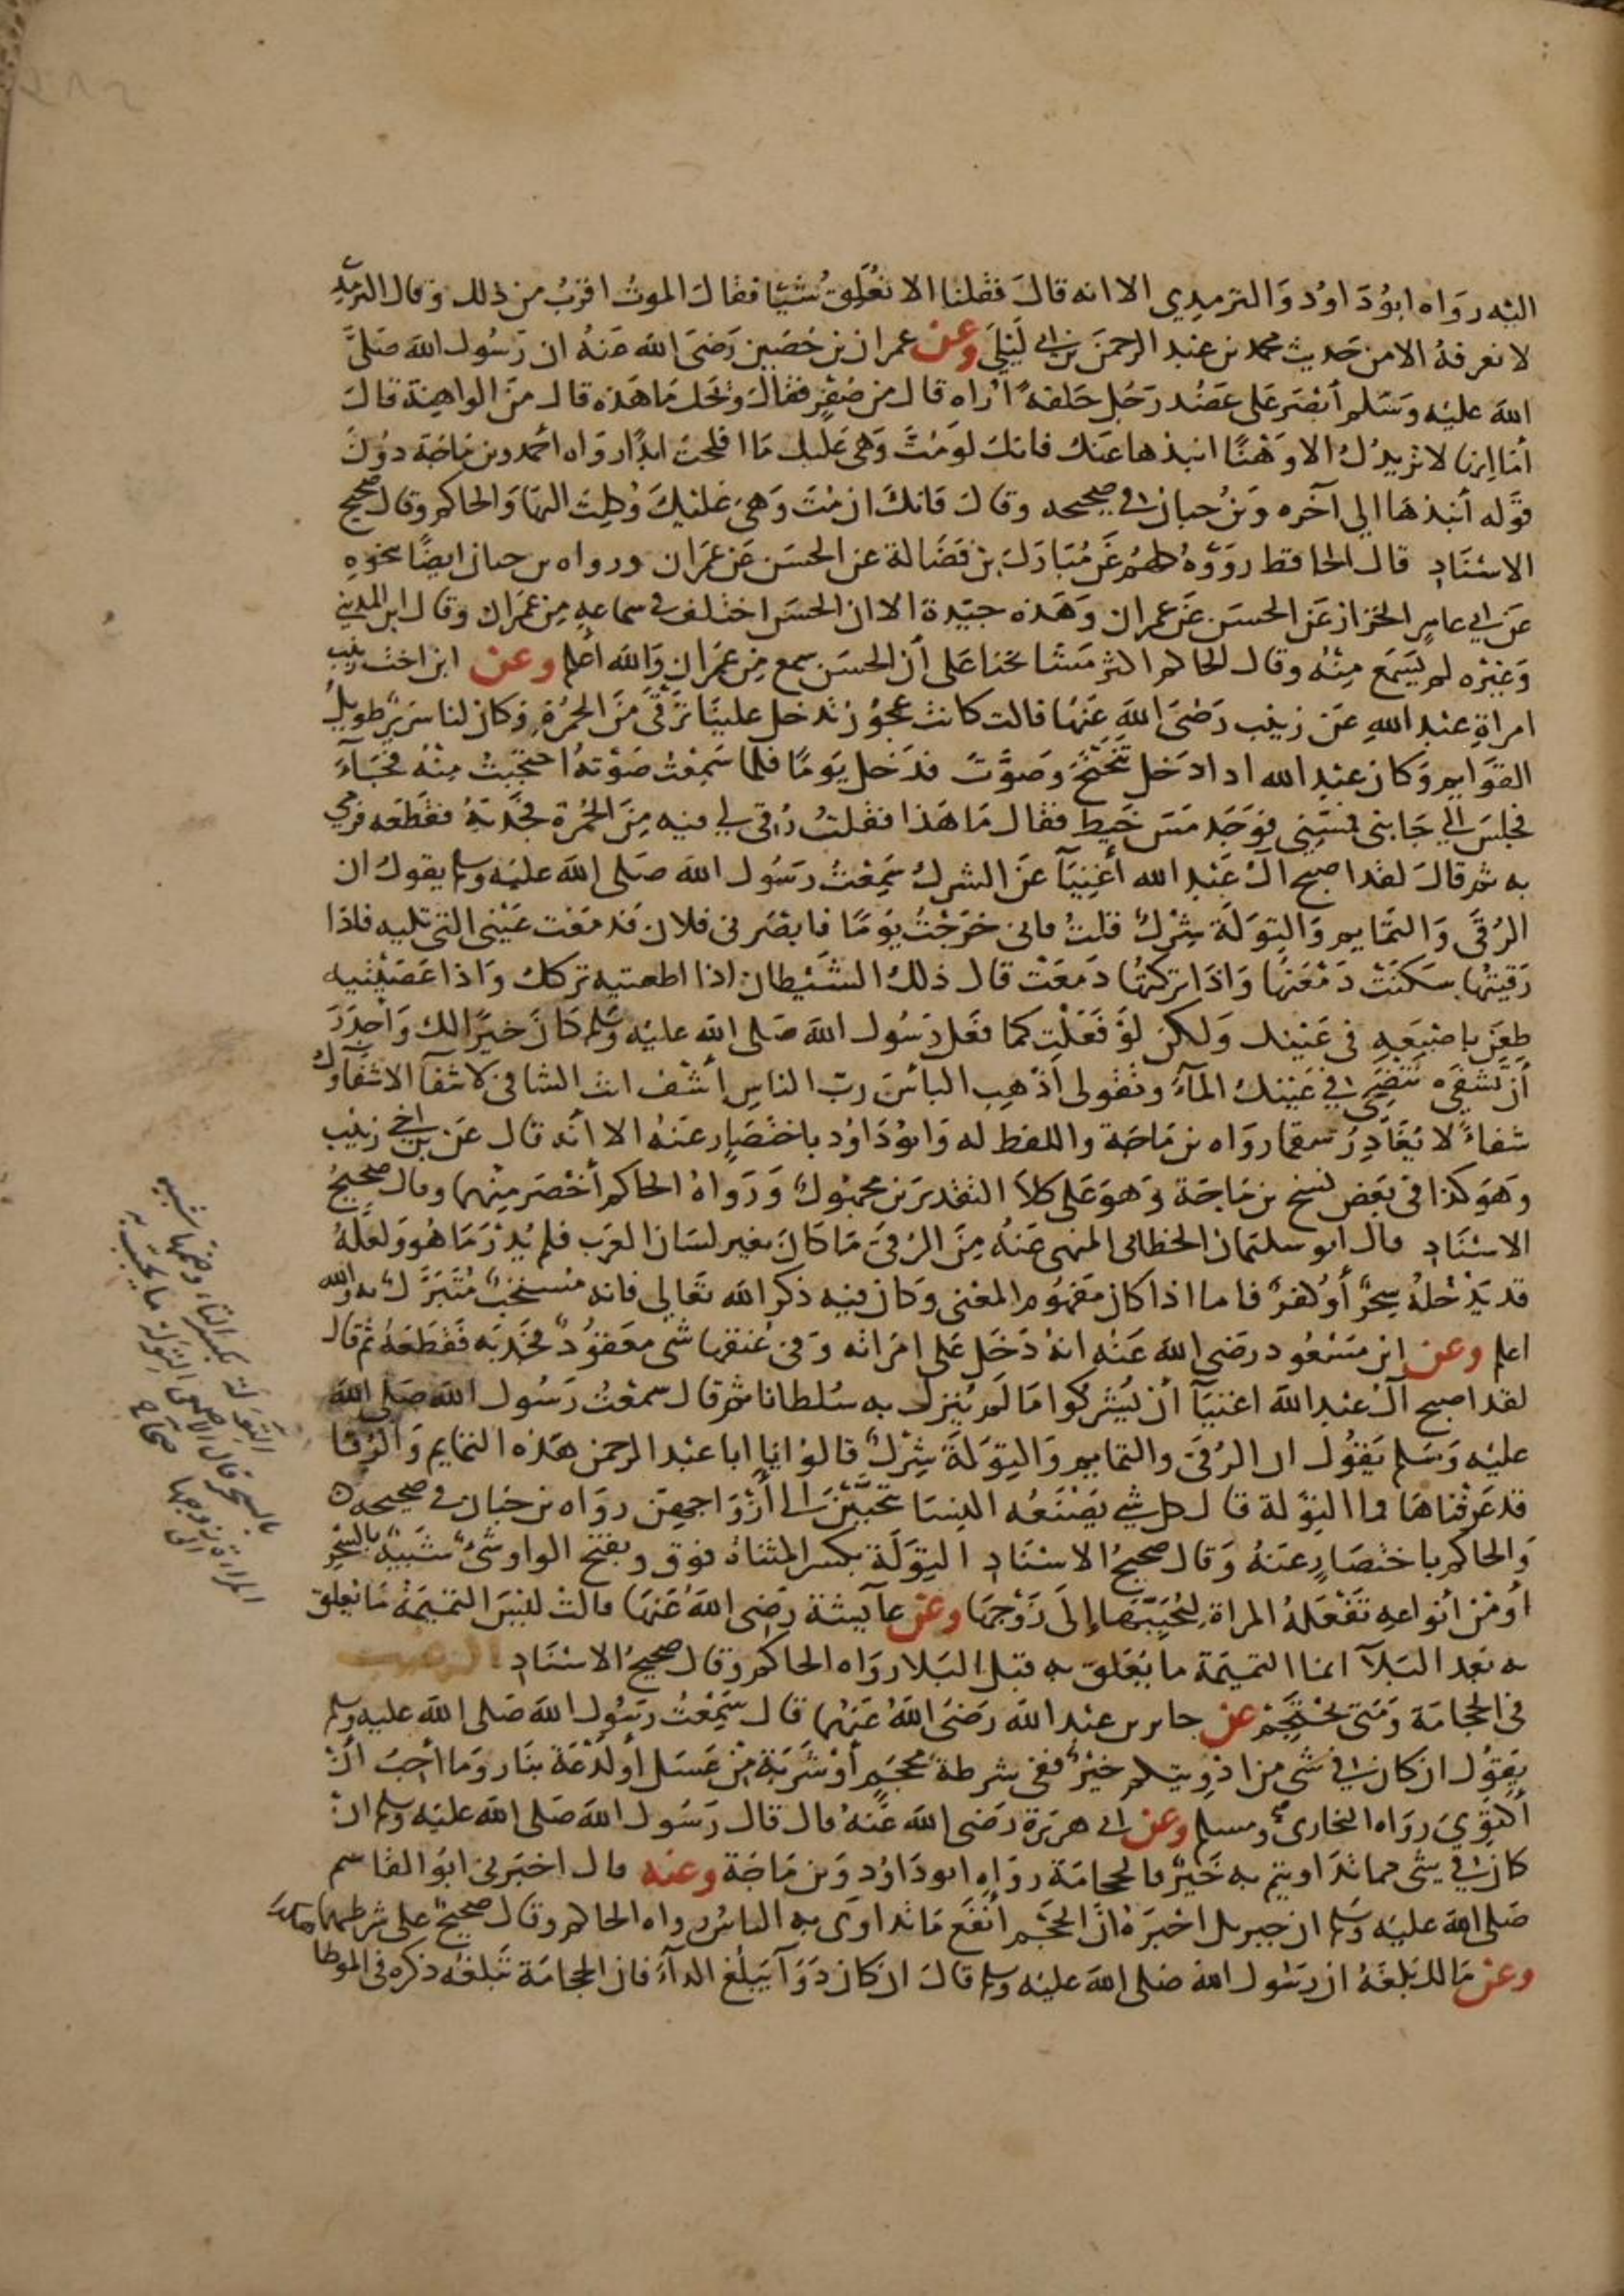 اليه رواه ابو داود والترمذي الا انه قال فقلنا الا تعلق شيئا فقال الموت اقرب من ذلك وقال الترمذي
لا نعرفه الا من حديث محمد بن عبد الرحمن بن ابي ليلى وعن عمران بن حصين رضي الله عنه ان رسول الله صلى
الله عليه وسلم أبصر على عضد رجل حلقة أراه قال من صفر فقال ويحك ما هذه قال من الواهنة قال
أما إنها لا تزيدك الا وهنا انبذها عنك فانك لو مت وهي عليك ما افلحت ابدا رواه احمد وبن ماجة دون
قوله أنبذها الى آخره وبن حبان في صحيحه وقال فانك ان مت وهي عليك وكلت اليها والحاكم وقال صحيح
الاسناد قال الحافظ رووه كلهم عن مبارك بن فضالة عن الحسن عن عمران ورواه بن حبان ايضا بنحوه
عن ابي عامر الخزاز عن الحسن عن عمران وهذه جيدة الا ان الحسن اختلف في سماعه من عمران وقال ابن المديني
وغيره لم يسمع منه وقال الحاكم اكثر مشائخنا على أن الحسن سمع من عمران والله أعلم وعن ابن اخت زينب
امراة عبد الله عن زينب رضي الله عنها قالت كانت عجوز تدخل علينا ترقى من الحمرة وكان لنا سرير طويل
القوايم وكان عبد الله اذا دخل تنحنح وصوت فدخل يوما فلما سمعت صوته احتجبت منه فجاء
فجلس الى جانبي فمسني فوجد مس خيط فقال ما هذا فقلت رقى لي فيه من الحمرة فجذبه فقطعه فرمى
به ثم قال لقد اصبح ال عبد الله أغنيآ عن الشرك سمعت رسول الله صلى الله عليه وسلم يقول ان
الرقى والتمايم والتولة شرك قلت فاني خرجت يوما فابصرني فلان فدمعت عيني التي تليه فاذا
رقيتها سكنت دمعتها واذا تركتها دمعت قال ذلك الشيطان اذا اطعتيه تركك واذا عصيتيه
طعن باصبعه في عينك ولكن لو فعلت كما فعل رسول الله صلى الله عليه وسلم كان خيرا لك وأجدر
أن تشفى تنضحي في عينك المآء وتقولي اذهب البأس رب الناس أشف انت الشافي لا شفآ الا شفآوك
شفاء لا يغادر سقما رواه بن ماجة واللفظ له وابو داود باختصار عنه الا أنه قال عن بن اخي زينب
وهو كذا في بعض نسخ بن ماجة وهو على كلا التقديرين مجهول ورواه الحاكم أخصر منهما وقال صحيح
الاسناد قال ابو سليمان الخطابي المنهي عنه من الرقى ما كان بغير لسان العرب فلم يدر ما هو ولعله
قد يدخله سحر أو كفر فاما اذا كان مفهوم المعنى وكان فيه ذكر الله تعالى فانه مستحب متبرك به والله
اعلم وعن ابن مسعود رضي الله عنه انه دخل على امراته وفي عنقها شي معقود فجذبه فقطعه ثم قال
لقد اصبح آل عبد الله اغنيآ أن يشركوا ما لم ينزل به سلطانا ثم قال سمعت رسول الله صلى الله
عليه وسلم يقول ان الرقى والتمايم والتولة شرك قالوا يا ابا عبد الرحمن هذه التمايم والرقا
قد عرفناها فما التولة قال كل شي يصنعه النسا يتحببن الى أزواجهن رواه بن حبان في صحيحه
والحاكم باختصار عنه وقال صحيح الاسناد التولة بكسر المثناة فوق وبفتح الواو شئ شبيه بالسحر
أو من أنواعه تفعله المراة ليحببها إلى زوجها وعن عآيشة رضي الله عنها قالت ليس التميمة ما تعلق
به بعد البلآ انما التميمة ما يعلق به قبل البلا رواه الحاكم وقال صحيح الاسناد الترغيب
في الحجامة ومتى يحتجم عن جابر بن عبد الله رضي الله عنهما قال سمعت رسول الله صلى الله عليه وسلم
يقول ان كان في شي من ادويتكم خير ففي شرطة محجم أو شربة من عسل أو لذعة بنار وما أحب أن
أكتوي رواه البخاري ومسلم وعن ابي هريرة رضي الله عنه قال قال رسول الله صلى الله عليه وسلم ان
كان في شي مما تداويتم به خير فالحجامة رواه ابو داود وبن ماجة وعنه قال اخبرني ابو القاسم
صلى الله عليه وسلم ان جبريل اخبره ان الحجم أنفع ما تداوى به الناس رواه الحاكم وقال صحيح على شرطهما
وعن مالك بلغه ان رسول الله صلى الله عليه وسلم قال ان كان دوآ يبلغ الدآء فان الحجامة تبلغه ذكره في الموطا
التولة بكسر التاء وضمها شبيه
بالسحر قال الاصمعي التولة ما تحبب به
المراة الى زوجها صحاح